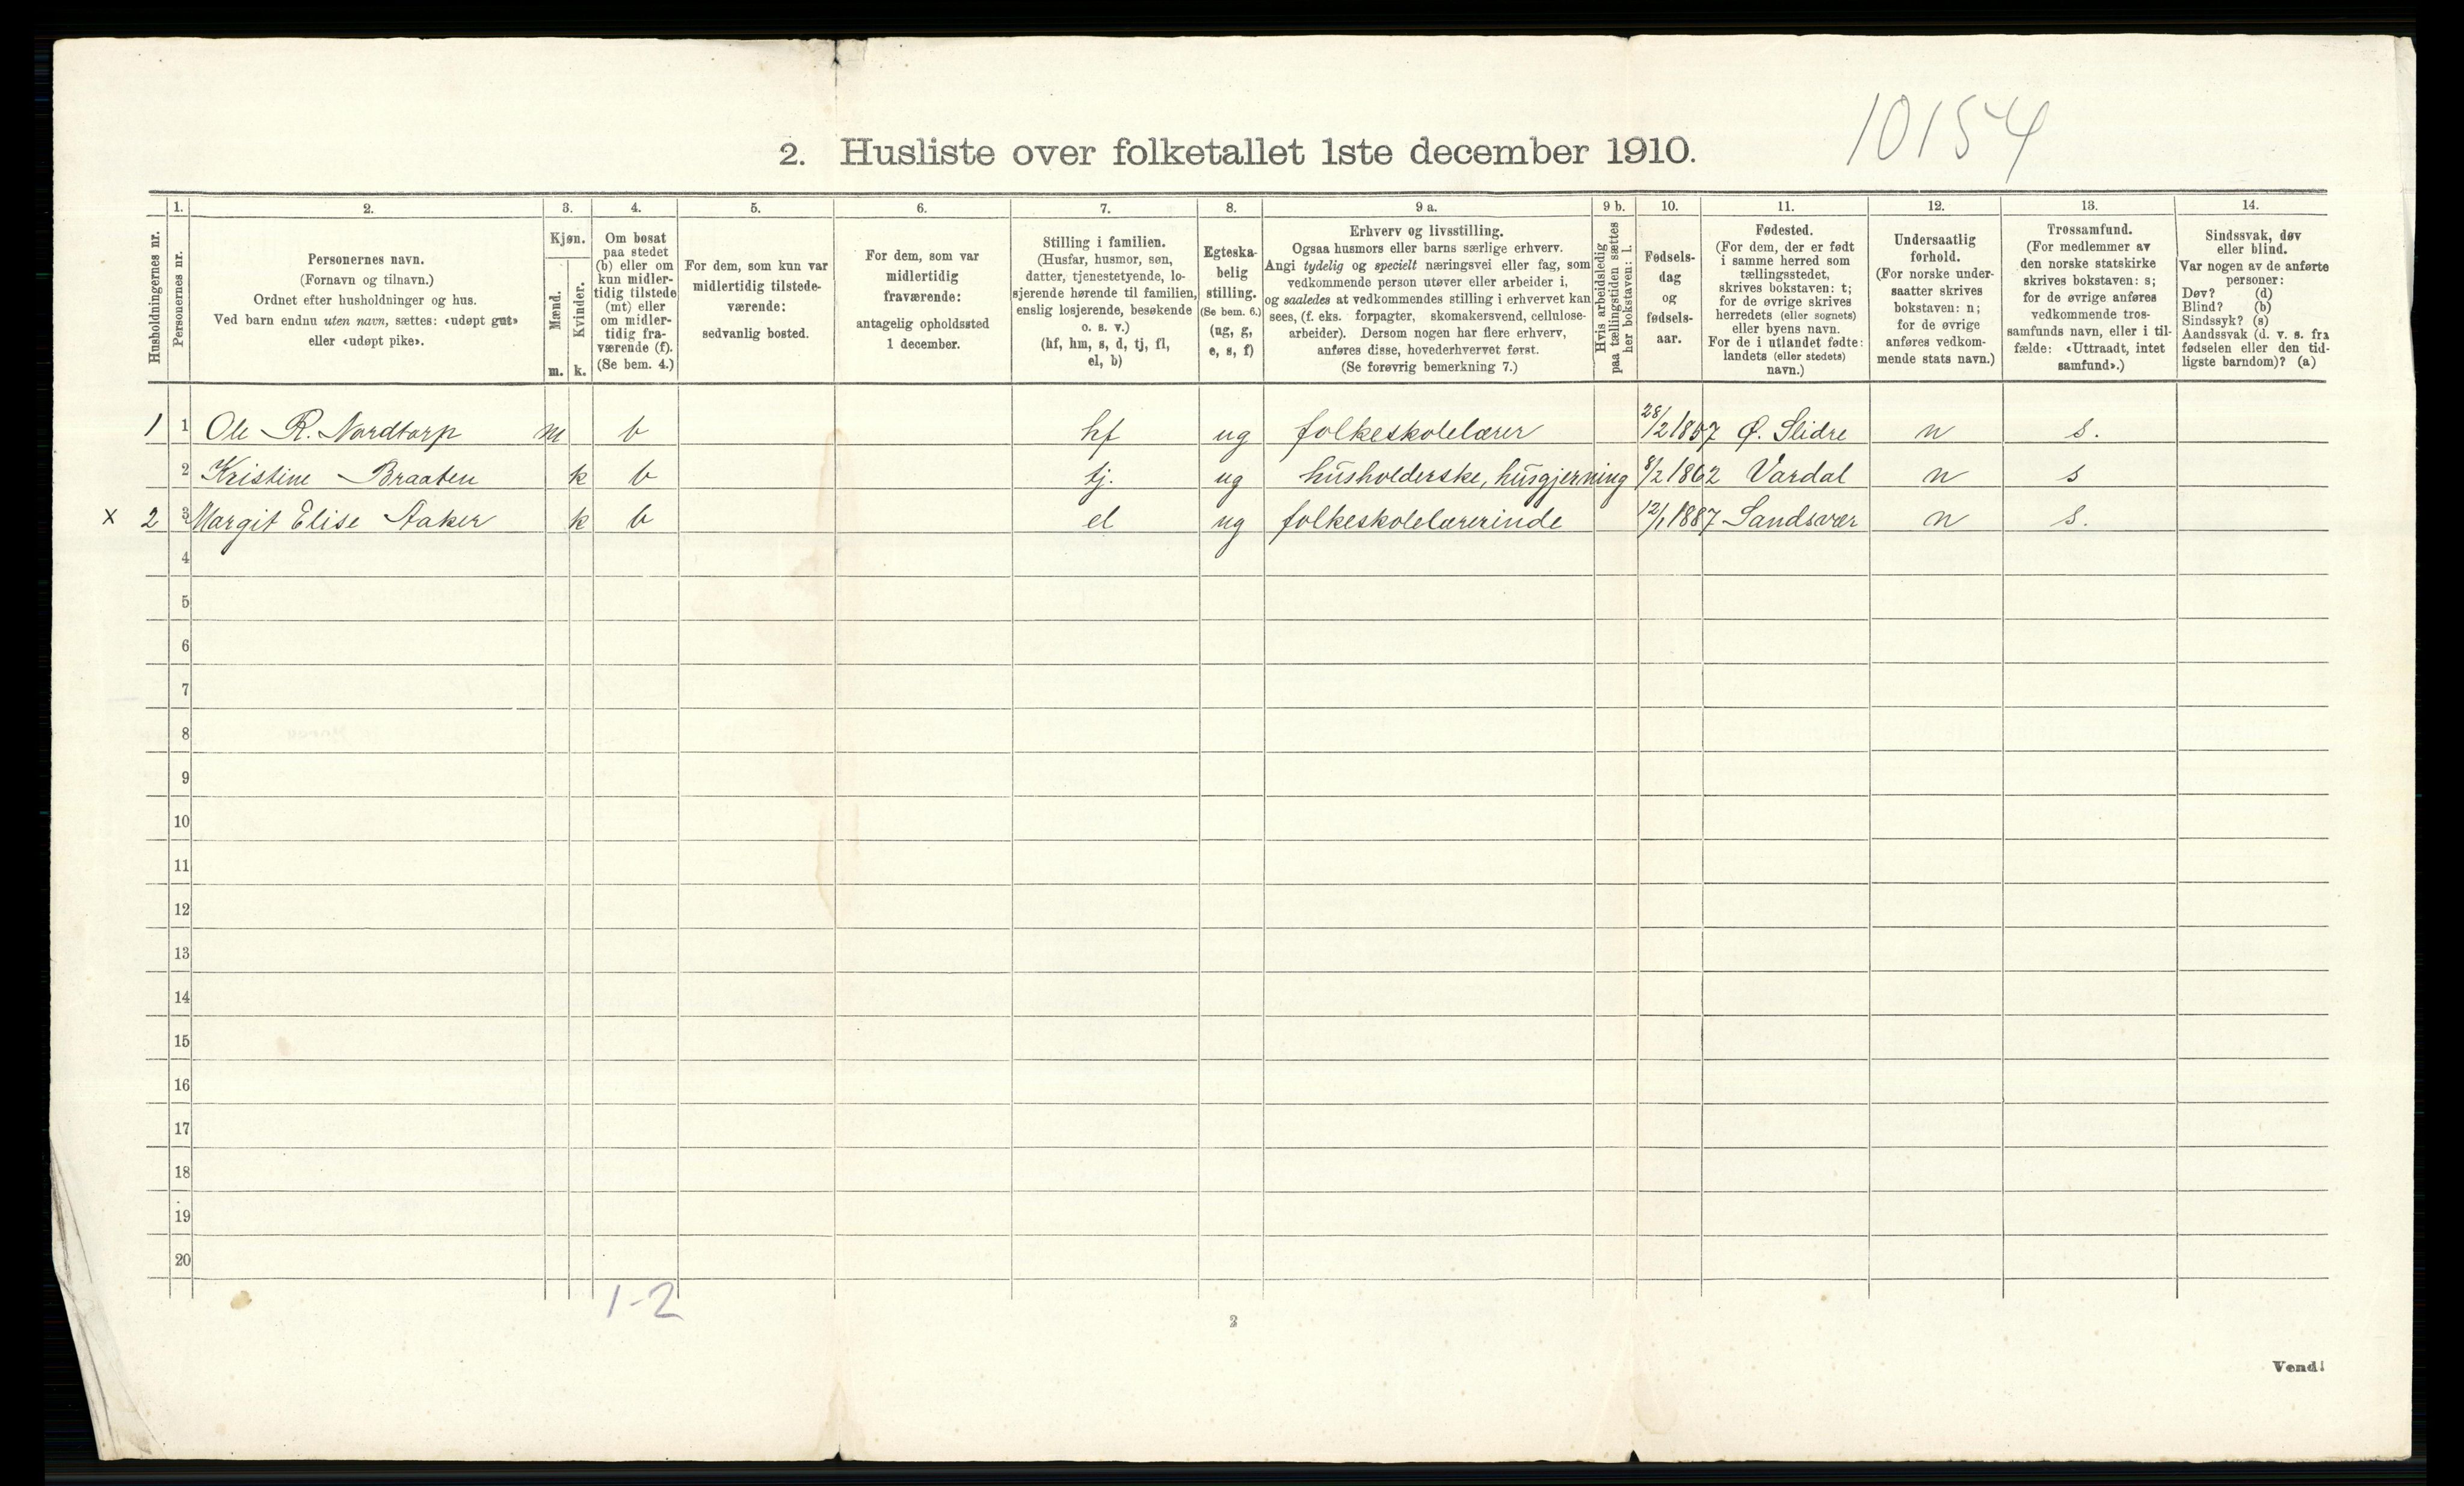 10154
2. Husliste over folketallet 1ste december 1910.
Husholdningernes nr.
1.
Personernes nr.
2.
Personernes navn.
(Fornavn og tilnavn.)
Ordnet efter husholdninger og hus.
Ved barn endnu uten navn, sættes: «udøpt gut»
eller «udøpt pike».
3.
Kjøn.
Mænd.
Kvinder.
m. k.
4.
Om bosat
paa stedet
(b) eller om
kun midler-
tidig tilstede
(mt) eller
om midler-
tidig fra-
værende (f).
(Se bem. 4.)
5.
For dem, som kun var
midlertidig tilstede-
værende:
sedvanlig bosted.
6.
For dem, som var
midlertidig
fraværende:
antagelig opholdssted
1 december.
7.
Stilling i familien.
(Husfar, husmor, søn,
datter, tjenestetyende, lo-
sjerende hørende til familien,
enslig losjerende, besøkende
o. s. v.)
(hf, hm, s, d, tj, fl,
el, b)
8.
Egteska-
belig
stilling.
(Se bem. 6.)
(ug, g,
e, s, f)
9 a.
Erhverv og livsstilling.
Ogsaa husmors eller barns særlige erhverv.
Angi tydelig og specielt næringsvei eller fag, som
vedkommende person utøver eller arbeider i,
og saaledes at vedkommendes stilling i erhvervet kan
sees, (f. eks. forpagter, skomakersvend, cellulose-
arbeider). Dersom nogen har flere erhverv,
anføres disse, hovederhvervet først.
(Se forøvrig bemerkning 7.)
9 b.
Hvis arbeidsledig
paa tællingstiden sættes
her bokstaven: l.
10.
Fødsels-
dag
og
fødsels-
aar.
11.
Fødested.
(For dem, der er født
i samme herred som
tællingsstedet,
skrives bokstaven: t;
for de øvrige skrives
herredets (eller sognets)
eller byens navn.
For de i utlandet fødte:
landets (eller stedets)
navn.)
12.
Undersaatlig
forhold.
(For norske under-
saatter skrives
bokstaven: n;
for de øvrige
anføres vedkom-
mende stats navn.)
13.
Trossamfund.
(For medlemmer av
den norske statskirke
skrives bokstaven: s;
for de øvrige anføres
vedkommende tros-
samfunds navn, eller i til-
fælde: «Uttraadt, intet
samfund».)
14.
Sindssvak, døv
eller blind.
Var nogen av de anførte
personer:
Døv? (d)
Blind? (b)
Sindssyk? (s)
Aandssvak (d. v. s. fra
fødselen eller den tid-
ligste barndom)? (a)
1 1 Ole R. Nordtorp m b hf ug folkeskolelærer 28/2 1857 Ø. Slidre n s.
2 Kristine Braaten k b tj. ug husholderske, husgjerning 8/2 1862 Vardal n s
x 2 3 Margit Elise Aaker k b el ug folkeskolelærerinde 12/1 1887 Sandsvær n s.
4
5
6
7
8
9
10
11
12
13
14
15
16
17
18
19
20
1-2
2
Vend!